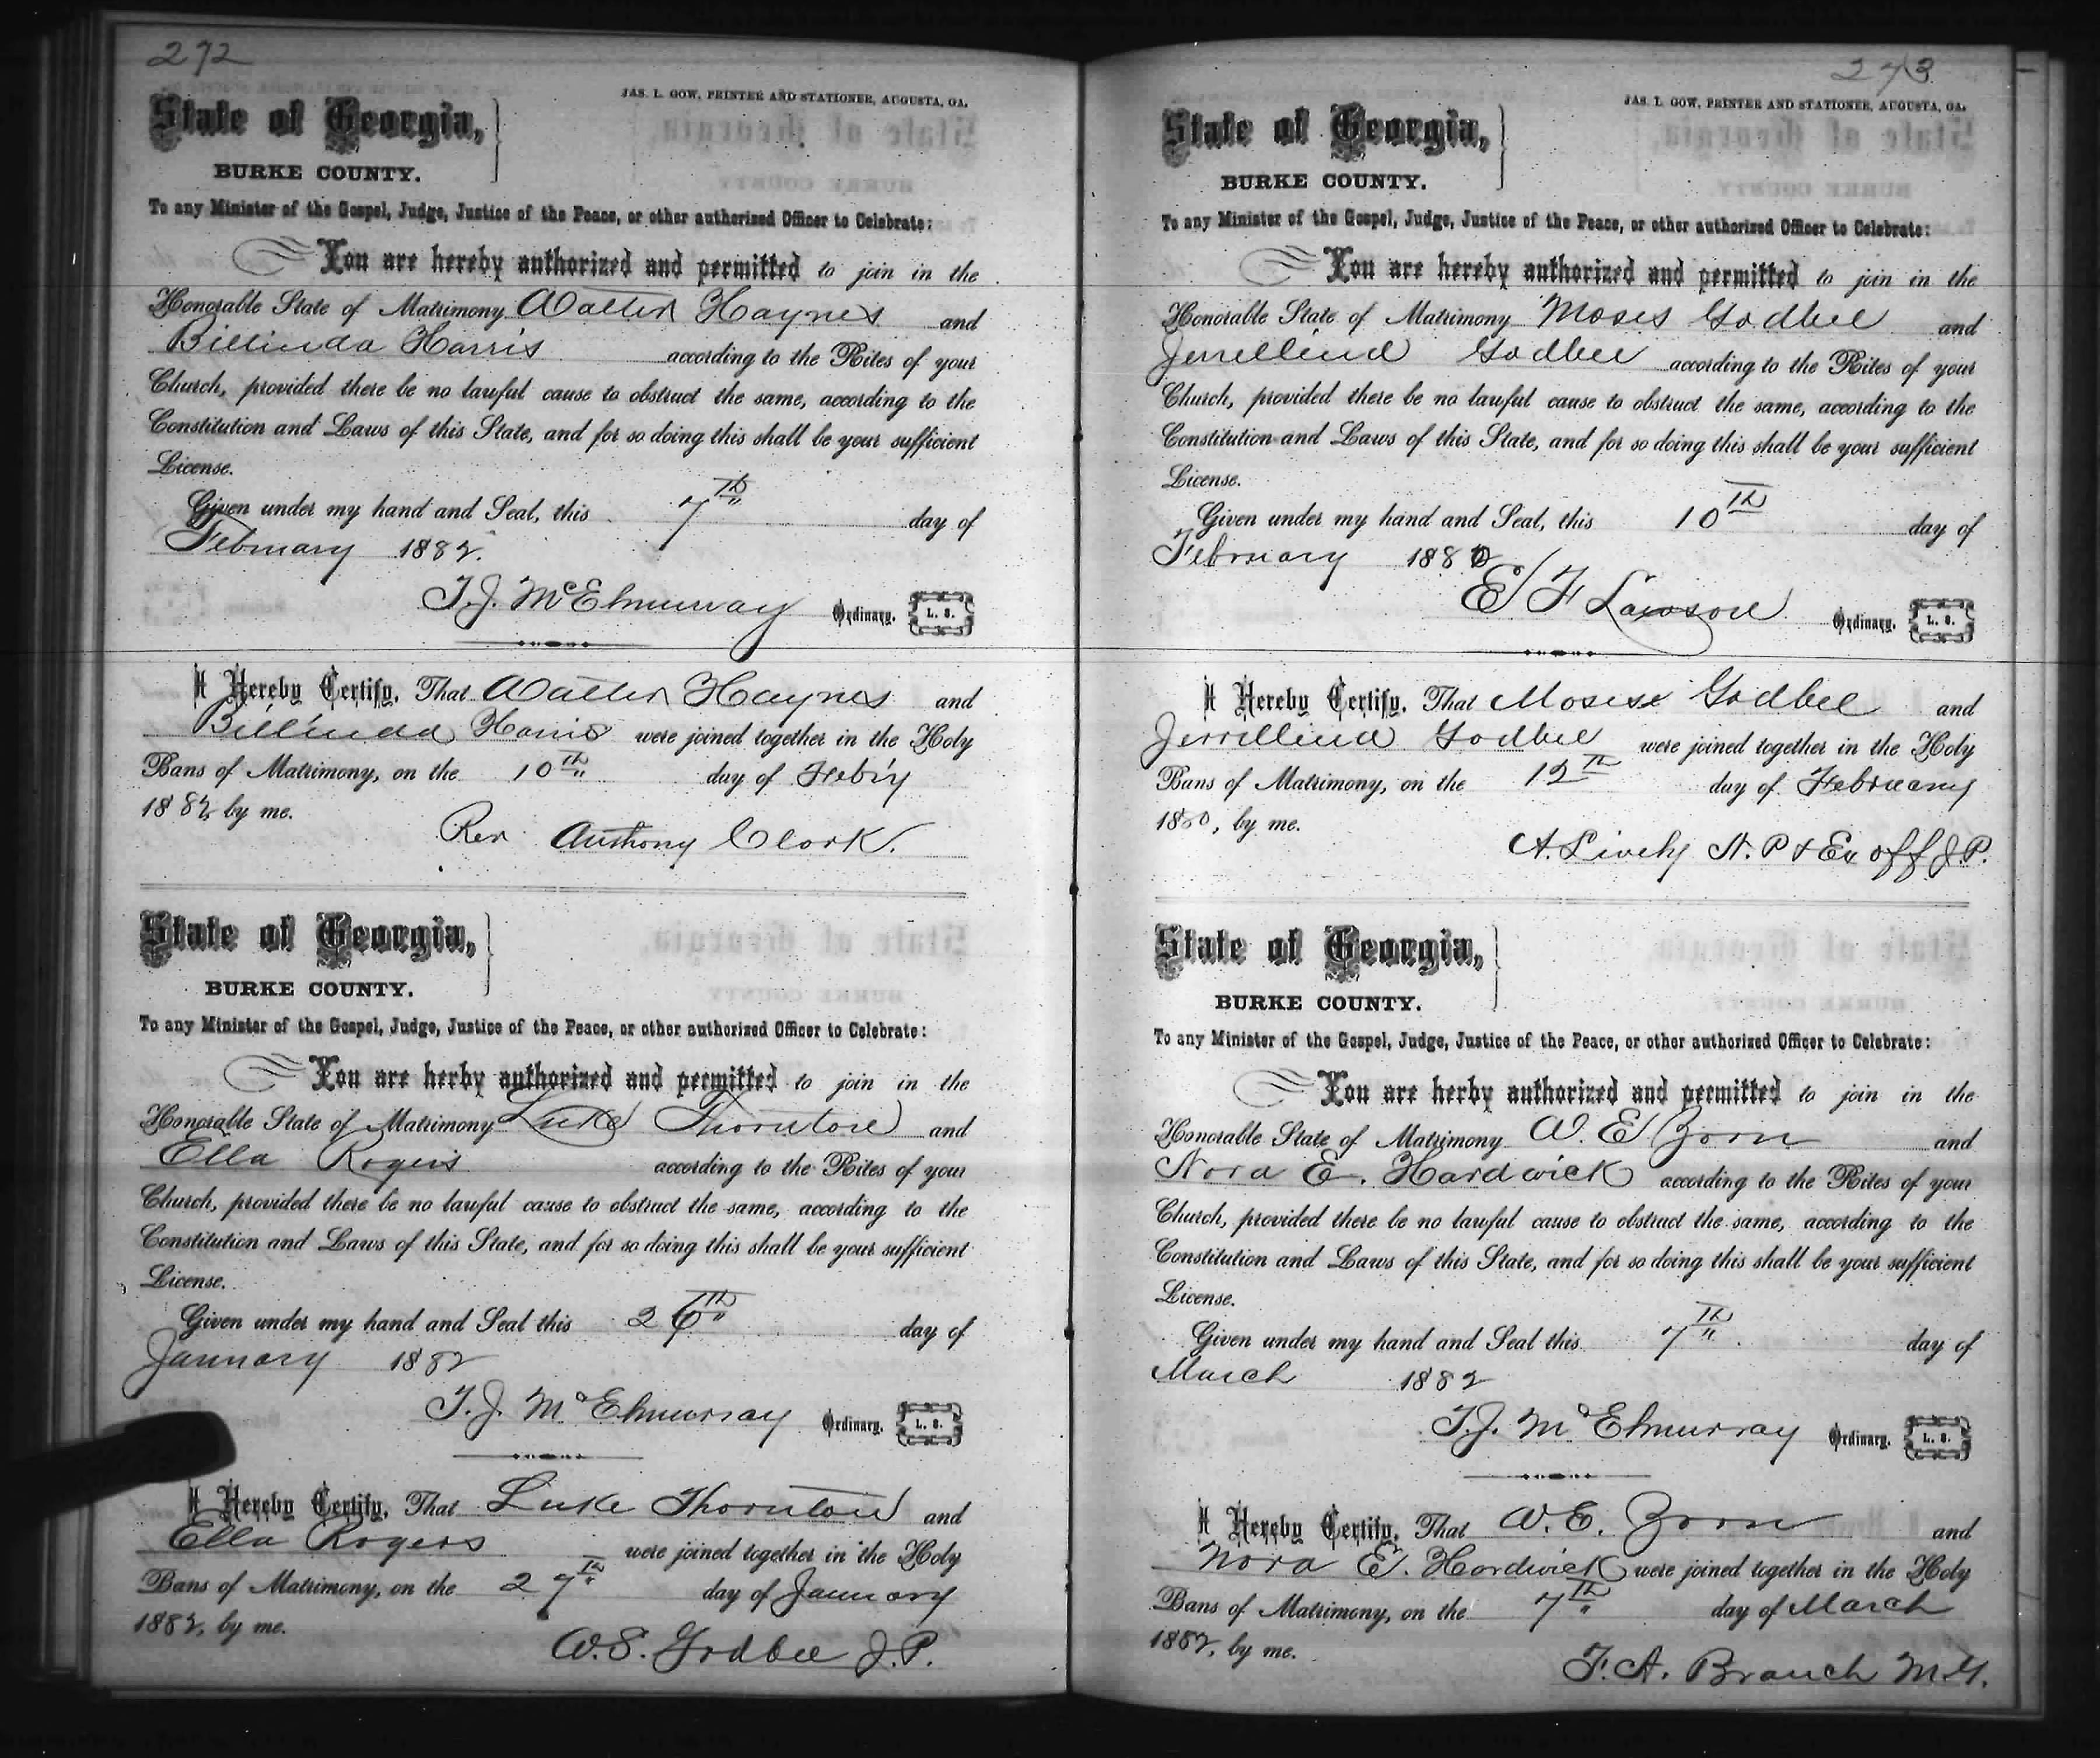 272
JAS. L. GOW, PRINTER AND STATIONER, AUGUSTA, GA.
State of Georgia,
BURKE COUNTY.
To any Minister of the Gospel, Judge, Justice of the Peace, or other authorized Officer to Celebrate:
You are hereby authorized and permitted to join in the
Honorable State of Matrimony Walter Haynes and
Billinda Harris according to the Rites of your
Church, provided there be no lawful cause to obstruct the same, according to the
Constitution and Laws of this State, and for so doing this shall be your sufficient
License.
Given under my hand and Seal, this 7th day of
February 1882.
T.J. McElmurray Ordinary. L. S.
I Hereby Certify, That Walter Haynes and
Billinda Harris were joined together in the Holy
Bans of Matrimony, on the 10th day of Feb'ry
1882, by me.
Rev Anthony Clark.
State of Georgia,
BURKE COUNTY.
To any Minister of the Gospel, Judge, Justice of the Peace, or other authorized Officer to Celebrate:
You are herby authorized and permitted to join in the
Honorable State of Matrimony Luke Thornton and
Ella Rogers according to the Rites of your
Church, provided there be no lawful cause to obstruct the same, according to the
Constitution and Laws of this State, and for so doing this shall be your sufficient
License.
Given under my hand and Seal this 26th day of
January 1882
T.J. McElmurray Ordinary. L. S.
I Hereby Certify, That Luke Thornton and
Ella Rogers were joined together in the Holy
Bans of Matrimony, on the 27th day of January
1882, by me.
W.S. Godbee J.P.
273
JAS. L. GOW, PRINTER AND STATIONER, AUGUSTA, GA.
State of Georgia,
BURKE COUNTY.
To any Minister of the Gospel, Judge, Justice of the Peace, or other authorized Officer to Celebrate:
You are hereby authorized and permitted to join in the
Honorable State of Matrimony Moses Godbee and
Jerrellind Godbee according to the Rites of your
Church, provided there be no lawful cause to obstruct the same, according to the
Constitution and Laws of this State, and for so doing this shall be your sufficient
License.
Given under my hand and Seal, this 10th day of
February 1880
E F Lawson Ordinary. L. S.
I Hereby Certify, That Moses Godbee and
Jerrellind Godbee were joined together in the Holy
Bans of Matrimony, on the 12th day of February
1880, by me.
A. Lively N. P & Ex off J.P.
State of Georgia,
BURKE COUNTY.
To any Minister of the Gospel, Judge, Justice of the Peace, or other authorized Officer to Celebrate:
You are herby authorized and permitted to join in the
Honorable State of Matrimony W. E Zorn and
Nora E. Hardwick according to the Rites of your
Church, provided there be no lawful cause to obstruct the same, according to the
Constitution and Laws of this State, and for so doing this shall be your sufficient
License.
Given under my hand and Seal this 7th day of
March 1882
T.J. McElmurray Ordinary. L. S.
I Hereby Certify, That W.E. Zorn and
Nora E. Hardwick were joined together in the Holy
Bans of Matrimony, on the 7th day of March
1882, by me.
F. A. Branch M.G.